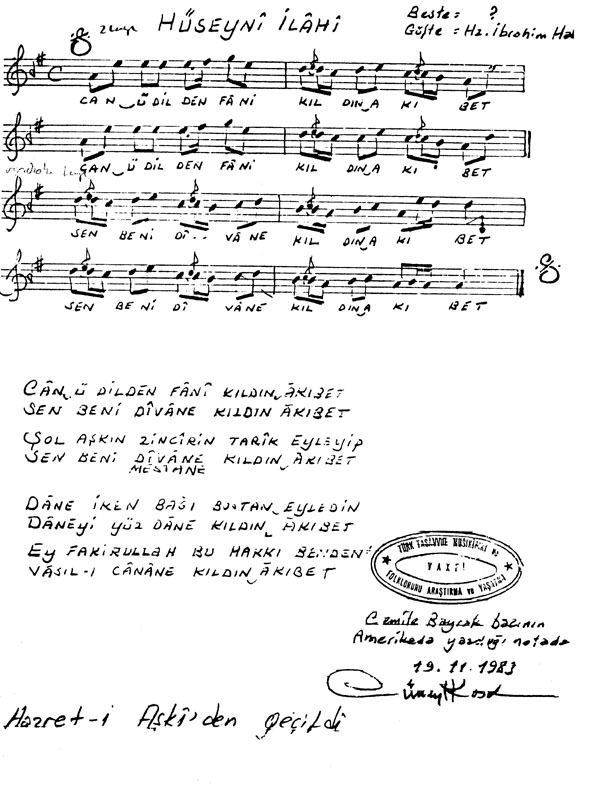 HÜSEYNÎ İLÂHÎ
Beste = ?
Güfte = Hz. İbrahim Hak
CAN Ü DİL DEN FÂNİ KIL DIN A KI BET
CAN Ü DİL DEN FÂNİ KIL DIN A KI BET
SEN BENİ DÎ.. VÂNE KIL DIN A KI BET
SEN BENİ DÎ VÂNE KIL DIN A KI BET
CÂN Ü DİLDEN FÂNÎ KILDIN ÂKIBET
SEN BENİ DÎVÂNE KILDIN ÂKIBET
ŞOL AŞKIN ZİNCÎRİN TARÎK EYLEYİP
SEN BENİ DÎVÂNE KILDIN ÂKIBET
MESTÂNE
DÂNE İKEN BAĞI BUSTAN EYLEDİN
DÂNEYİ YÜZ DÂNE KILDIN ÂKIBET
EY FAKİRULLAH BU HAKKI BENDEN
VÂSIL-I CÂNÂNE KILDIN ÂKIBET
TÜRK TASAVVUF MUSIKİSİNİ ve
VAKFI
FOLKLORUNU ARAŞTIRMA ve YAŞATMA
Cemile Bayrak bacının
Amerikada yazdığı notada
19.11.1983
Cüneyt Kosal
Hazret-i Aşkî'den geçildi